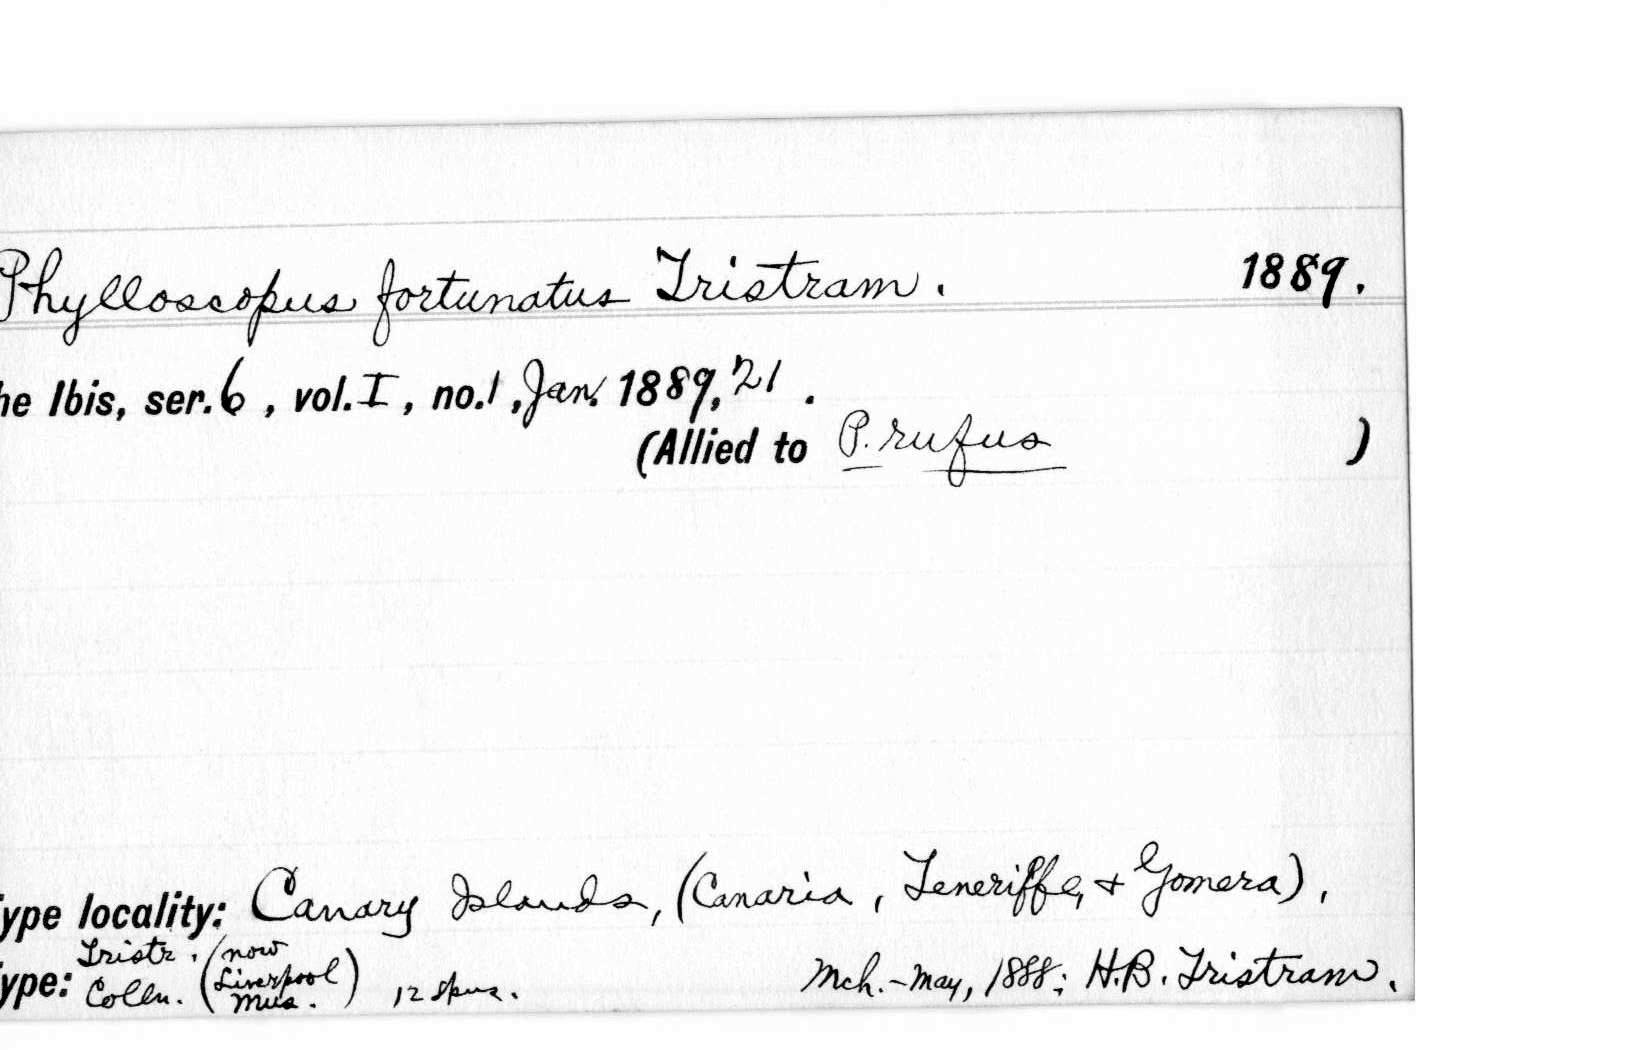 Phylloscopus fortunatus Tristram. 1889.
he Ibis, ser. 6, vol. I, no. 1, Jan. 1889, 21.
(Allied to P. rufus )
ype locality: Canary Islands, (Canaria, Teneriffe, + Gomera),
ype: Tristr. Colln. (now Liverpool Mus.) 12 spms. Mch.-May, 1888; H.B. Tristram.